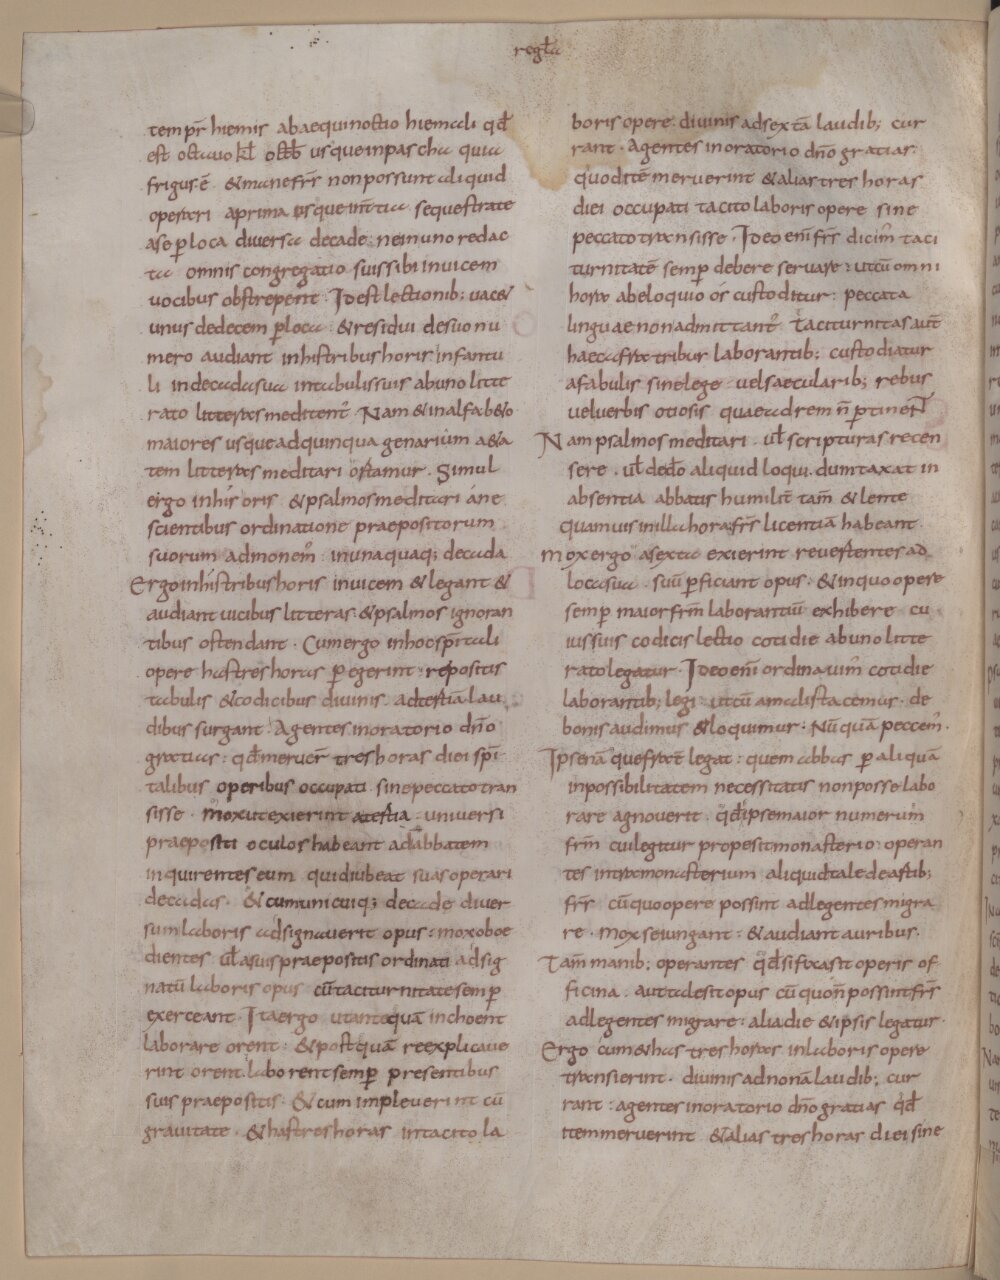 regła
tempr̄ hiemis ab aequinoctio hiemali qđ
est octauo kł octb̄ usque in pascha quia
frigus ē & mane frr̄s non possunt aliquid
operari a prima usque in t̄tia sequestrate
a se p̱ loca diuersa decade: ne in uno redac
ta omnis congregatio suis sibi inuicem
uocibus obstrepent: Id est lectionib; uac&
unus de decem p̱ loca: & residui de suo nu
mero audiant in his tribus horis infantu
li in decada sua in tabulis suis ab uno litte
rato litteras meditent̄. Nam & in alfab&o
maiores usque ad quinquagenarium a&a
tem litteras meditari ortamur. Simul
ergo in his oris & psalmos meditari a ne
scientibus ordinatione praepositorum
suorum admonem̄ in una quaq; decada
Ergo in his tribus horis inuicem & legant &
audiant uicibus litteras & psalmos ignoran
tibus ostendant. Cum ergo in hoc spīritali
opere has tres horas p̱egerint: repositis
tabulis & codicibus diuinis ad tertiā lau
dibus surgant. Agentes in oratorio dn̄o
gratias: qđ meruer̄ tres horas diei spī
talibus operibus occupati sine peccato tran
sisse. mox ut exierint a tertia: uniuersi
praepositi oculos habeant ad abbatem
inquirentes eum quid iubeat suas operari
decadas. & cum unicuiq; decade diuer
sum laboris adsignauerit opus: mox oboe
dientes uł a suis praepositis ordinati adsig
natū laboris opus cū taciturnitate semp̱
exerceant. Ita ergo ut antequā inchoent
laborare orent: & postquā reexplicaue
rint orent. laborent semp̱ presentibus
suis praepositis. & cum impleuerint cū
grauitate. & has tres horas in tacito la
boris opere: diuinis ad sextā laudib; cur
rant. Agentes in oratorio dn̄o gratias:
quod itē meruerint & alias tres horas
diei occupati tacito laboris opere sine
peccato transisse. Ideo enī frr̄s dicim̄ taci
turnitatē semp̱ debere seruare: ut cū omni
hora ab eloquio os custoditur: peccata
linguae non admittant̄. taciturnitas aut̄
haec a fratribus laborantib; custodiatur
a fabulis sine lege uel saecularib; rebus
uel uerbis otiosis quae ad rem n̄ pertinent
Nam psalmos meditari. uł scripturas recen
sere. uł de dō aliquid loqui. dumtaxat in
absentia abbatis humilit̄ tam̄ & lente
quamuis in illa hora frr̄s licentiā habeant.
mox ergo a sexta exierint reuertentes ad
loca sua. suū p̱ficiant opus. & in quo opere
semp̱ maior frm̄ laborantiū exhibere cu
ius suis codicis lectio cotidie ab uno litte
rato legatur. Ideo enī ordinauim̄ cotidie
laborantib; legi: ut cū a malis tacemus. de
bonis audimus & loquimur. Nūquā peccem̄.
Ipse nāque frater legat: quem abbas p̱ aliquā
inpossibilitatem necessitatis non posse labo
rare agnouerit. qđ ipse maior numerum
frm̄ cui legitur pro posit monasterio: operan
tes intra monasterium aliquid tale de artib;
frr̄s cū quo opere possint ad legentes migra
re. mox seiungant: & audiant auribus.
Tam̄ manib; operantes qđ si fixa sit operis of
ficina. aut tale sit opus cū quo n̄ possint frr̄s
ad legentes migrare: alia die & ipsis legatur.
Ergo cum & has tres horas in laboris opere
transierint. diuinis ad nonā laudib; cur
rant: agentes in oratorio dn̄o gratias qđ
item meruerint & alias tres horas diei sine